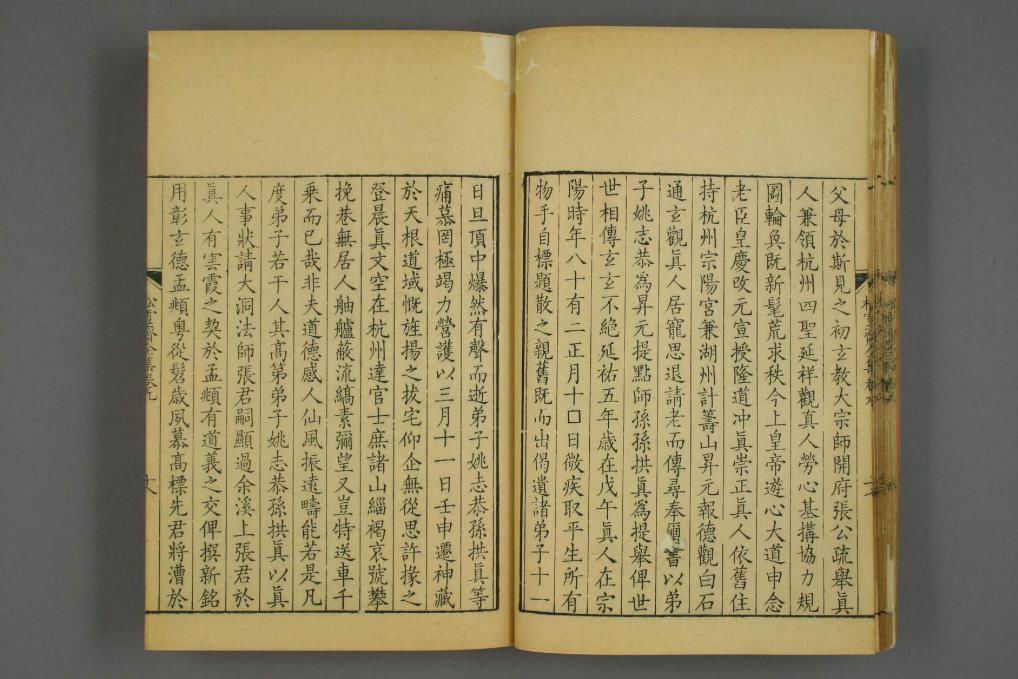 父母於斯見之初玄教大宗師開府張公疏舉眞
人兼領杭州四聖延祥觀真人勞心基搆協力規
圖輪奐既新髦荒求秩今上皇帝遊心大道申念
老臣皇慶改元宣授隆道冲眞崇正眞人依舊住
持杭州宗陽宮兼湖州計籌山昇元報德觀白石
通玄觀眞人居寵思退請老而傳尋奉璽書以弟
子姚志恭爲昇元提點師孫孫拱眞爲提舉俾世
世相傳玄玄不絕延祐五年歲在戊午眞人在宗
陽時年八十有二正月十□日微疾取平生所有
物手自標題散之親舊既而出偈遺諸弟子十一
日旦頂中爆然有聲而逝弟子姚志恭孫拱眞等
痛慕罔極竭力營護以三月十一日壬申遷神藏
於天根道域慨旌揚之拔宅仰企無從思許掾之
登晨眞文空在杭州達官士庶諸山緇褐哀號攀
挽巷無居人舳艫蔽流縞素彌望又豈特送車千
乗而已哉非夫道德感人仙風振遠疇能若是凡
度弟子若干人其高第弟子姚志恭孫拱眞以眞
人事狀請大洞法師張君嗣顯過余溪上張君於
眞人有雲霞之契於孟頫有道義之交俾撰新銘
用彰玄德孟頫粤從髫歲夙慕高標先君將漕於